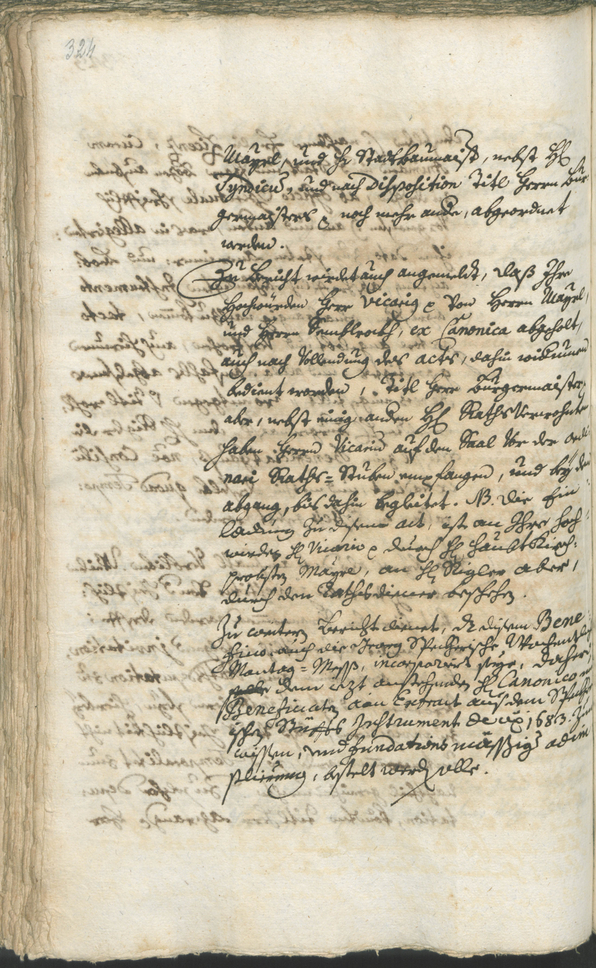 324
Mayrl, und H: Stadtbaumaist, nebst H:
Syndicus, und nach Disposition Titl Herrn Bur
germaisters noch mehr andre, abgeordnet
werden.
Zu bericht würdet auch angemeldt, daß Ihre
Hochwürden Herr Vicarius von Herrn Mayrl
und Herrn ex Canonica abgeholt,
auch nach Vollendung des acts, dahin widerumen
bedient worden, Titl Herr Burgermaister
aber, nebst einig anderen H: Raths Verwohnte
haben Herrn Vicario auf dem Saal vor der ordi
nari Raths=Stuben empfangen, und bey dem
abgang, bis dahin begleitet. NB. die Ein
ladung zu disem act, ist an Ihre Hoch
würden H: Vicario durch H: Haubt Kirch=
probsten Mayrl, an H: Rigler aber,
durch den Rathsdiener beschehen.
Zu bericht dienet, dz disem Bene
ficio, auch die Georg Wochentl
Montag=Mess, incorporiert seye, daher
dem iezt anstehenden H: Canonico
Beneficiaten ain Extract aus dem
ischen Stüfts Instrument de 1683. zu
wissen, und fundations mässig adim
plierung, bstelt werden solle.